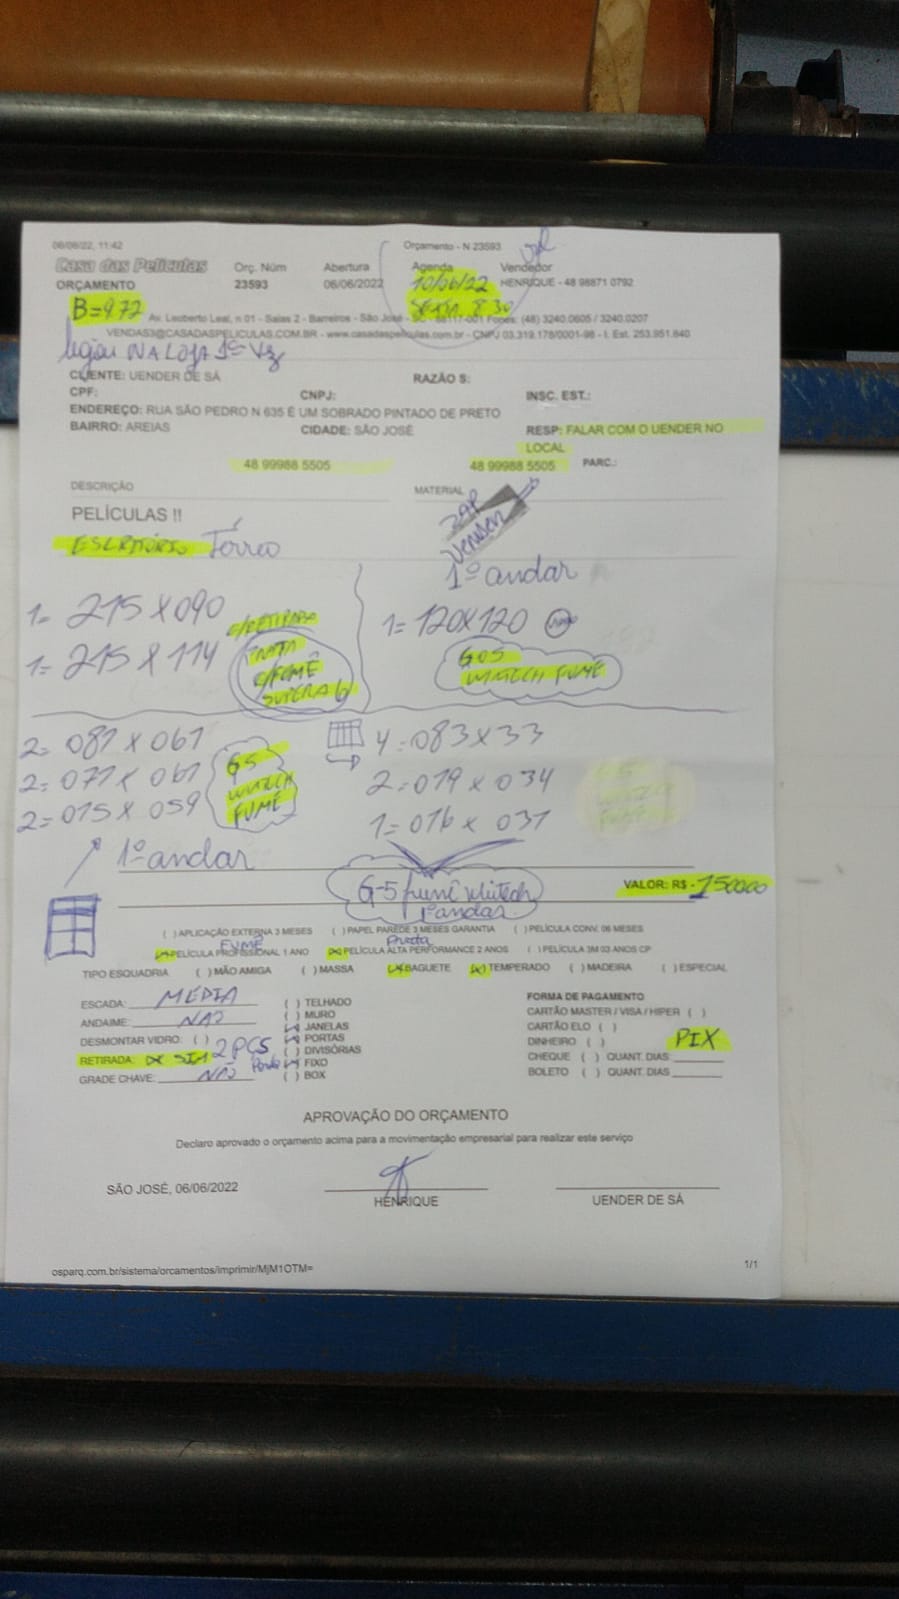 06/06/22, 11:42 Orçamento - N 23593
Casa das Películas Orç. Núm Abertura Agenda Vendedor
ORÇAMENTO 23593 06/06/2022 10/06/22 HENRIQUE - 48 98871 0792
B=9.72 SEXTA 8.30
Av. Leoberto Leal, n 01 - Salas 2 - Barreiros - São José - SC - 88117-001 Fones: (48) 3240.0605 / 3240.0207
VENDAS3@CASADASPELICULAS.COM.BR - www.casadaspeliculas.com.br - CNPJ 03.319.178/0001-98 - I. Est. 253.951.640
ligou NA LOJA 1º Vz
CLIENTE: UENDER DE SÁ RAZÃO S:
CPF: CNPJ: INSC. EST.:
ENDEREÇO: RUA SÃO PEDRO N 635 É UM SOBRADO PINTADO DE PRETO
BAIRRO: AREIAS CIDADE: SÃO JOSÉ RESP: FALAR COM O UENDER NO
LOCAL
48 99988 5505 48 99988 5505 PARC.:
DESCRIÇÃO MATERIAL
PELÍCULAS !!
ESCRITÓRIO Térreo
1º andar
1= 215 X 090 C/RETIRADA 1= 120X120
1= 215 X 114 C/FUMÊ G05
WINTECH FUMÊ
2= 081 X 061 4=083 X 33
2= 071 X 061 G5 2=079 X 034
2= 075 X 059 FUMÊ 1= 076 X 031
1º andar
G-5 fumê Wintech VALOR: R$ -150000
1º andar
( ) APLICAÇÃO EXTERNA 3 MESES ( ) PAPEL PAREDE 3 MESES GARANTIA ( ) PELÍCULA CONV. 06 MESES
FUMÊ Preta
(X) PELÍCULA PROFISSIONAL 1 ANO (X) PELÍCULA ALTA PERFORMANCE 2 ANOS ( ) PELÍCULA 3M 03 ANOS CP
TIPO ESQUADRIA ( ) MÃO AMIGA ( ) MASSA (X) BAGUETE (X) TEMPERADO ( ) MADEIRA ( ) ESPECIAL
ESCADA: MEDIA ( ) TELHADO FORMA DE PAGAMENTO
ANDAIME: NAO ( ) MURO CARTÃO MASTER / VISA / HIPER ( )
(X) JANELAS CARTÃO ELO ( )
DESMONTAR VIDRO: ( ) (X) PORTAS DINHEIRO ( ) PIX
RETIRADA: (X) SIM 2 PÇS ( ) DIVISÓRIAS CHEQUE ( ) QUANT. DIAS
(X) FIXO BOLETO ( ) QUANT. DIAS
GRADE CHAVE: NAO ( ) BOX
APROVAÇÃO DO ORÇAMENTO
Declaro aprovado o orçamento acima para a movimentação empresarial para realizar este serviço
SÃO JOSÉ, 06/06/2022
HENRIQUE UENDER DE SÁ
osparq.com.br/sistema/orcamentos/imprimir/MjM1OTM= 1/1